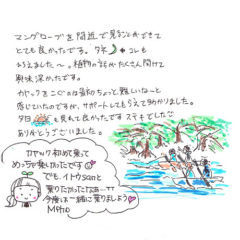 マングローブを間近で見ることができて
とても良かったです。タネ コレも
もらえました〜。植物の話がたくさん聞けて
興味深かったです。
カヤックをこぐのは最初ちょっと難しいなと
感じていたのですが、サポートしてもらえて助かりました。
夕日も見れて良かったです ステキでした
ありがとうございました。
カヤック初めて乗って
めっちゃ楽しかったです
でも イトウsanと
乗りたかったなぁーTT
今度は一緒に乗りましょう